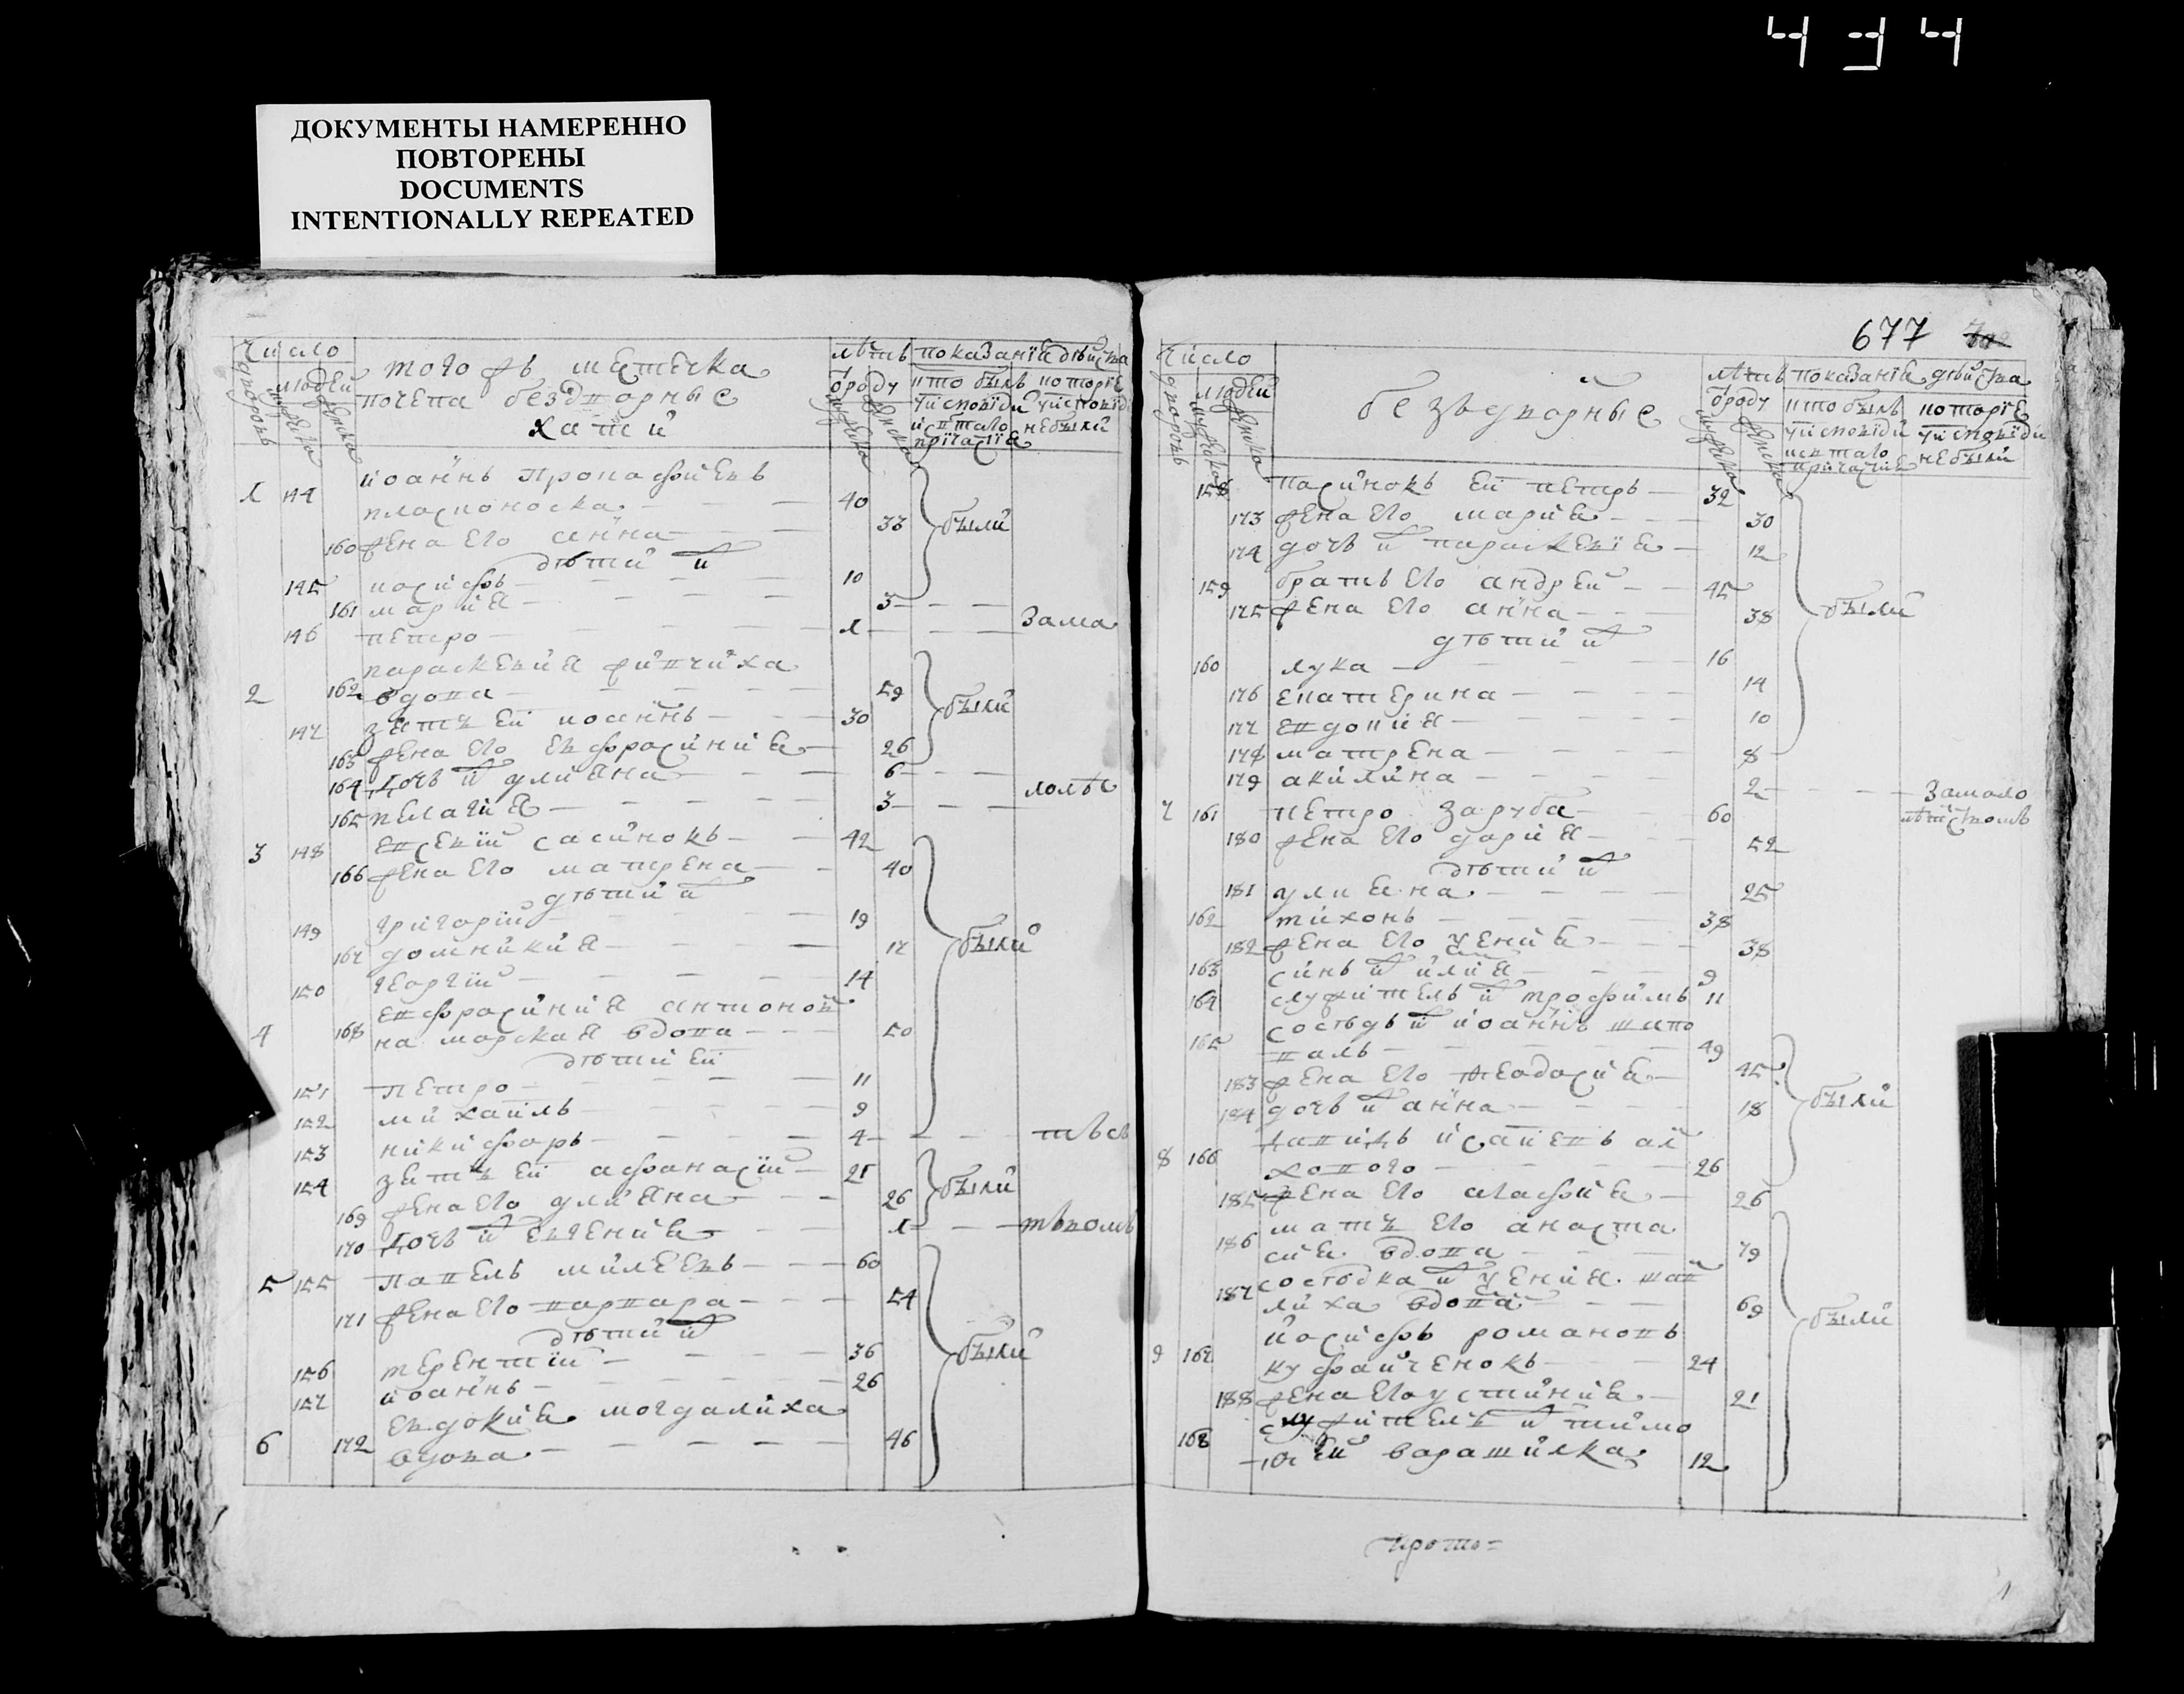 434
ДОКУМЕНТЫ НАМЕРЕННО
ПОВТОРЕНЫ
DOCUMENTS
INTENTIONALLY REPEATED
число
дворовъ
людей
мужеска
женска
тогожъ местечка
почепа бездворные
хати
лѣтъ
ѿроду
мужеска
женска
показаніе дѣйства
кто былъ
уисповѣди
и с̃таго
причастіѧ
которіе
уисповѣди
небыли
1 144 иоаннъ Прокафиевъ
плосконоска — 40
160 жена его анна — 33
были
дѣти ихъ
145 иосифъ — 10
161 мариѧ — 3
146 петро — 1
Зама
параскевиѧ живчиха
2 162 вдова — 59
147 зѧть ей иоаннъ — 30
были
163 жена его евфросиниѧ — 26
164 дочь ихъ улиѧна — 6
165 пелагиѧ — 3
лолѣс
3 148 евсевій сасинокъ — 42
166 жена его матрена — 40
дѣти ихъ
149 григорій — 19
167 домникиѧ — 17
были
150 георгій — 14
евфросиниѧ антонов
4 168 на морскаѧ вдова — 50
дѣти ей
151 Петро — 11
152 михаилъ — 9
153 никифоръ — 4
тьвсь
154 зѧть ей афанасій — 25
169 жена его улиѧна — 26
были
170 дочь ихъ евгениѧ — 1
твомъ
5 155 павелъ милеевъ — 60
171 жена его варвара — 54
дѣти ихъ
156 терентій — 36
157 иоаннъ — 26
были
евдокиѧ могдалиха
6 172 вдова — 46
677
число
дворовъ
людей
мужеска
женска
бездворные
лѣтъ
ѿроду
мужеска
женска
показаніѧ дѣйства
кто былъ
уисповѣди
исвтаго
причастіѧ
которіе
уисповѣди
небыли
158 пасинокъ ей петръ — 32
173 жена его мариѧ — 30
174 дочь ихъ параскевіѧ — 12
159 братъ его андрей — 45
175 жена его анна — 38
были
дѣти ихъ
160 лука — 16
176 екатерина — 14
177 евдокиѧ — 10
178 матрена — 8
179 акилина — 2
Замало
лѣтствомъ
7 161 петро заруба — 60
180 жена его дариѧ — 52
дѣти ихъ
181 улиѧна — 25
162 тихонъ — 38
182 жена его ѯениѧ — 38
163 синъ ихъ илиѧ — 9
164 служитель ихъ трофимъ 11
сосѣдъ ихъ иоаннъ шапо
165 валъ — 49
183 жена его ѳеодосиѧ — 45
184 дочь ихъ анна — 18
были
данилъ исаиевъ ал
8 166 хового — 26
185 жена его агафиѧ — 26
мать его анаста
186 сиѧ вдова — 79
сосѣдка ихъ ѯениѧ шав
187 лиха вдова — 69
были
иосифъ романовъ
9 167 куфайченокъ — 24
188 жена его устиниѧ — 21
служитель ихъ тимо
168 ѳей ворашилка 12
прото=